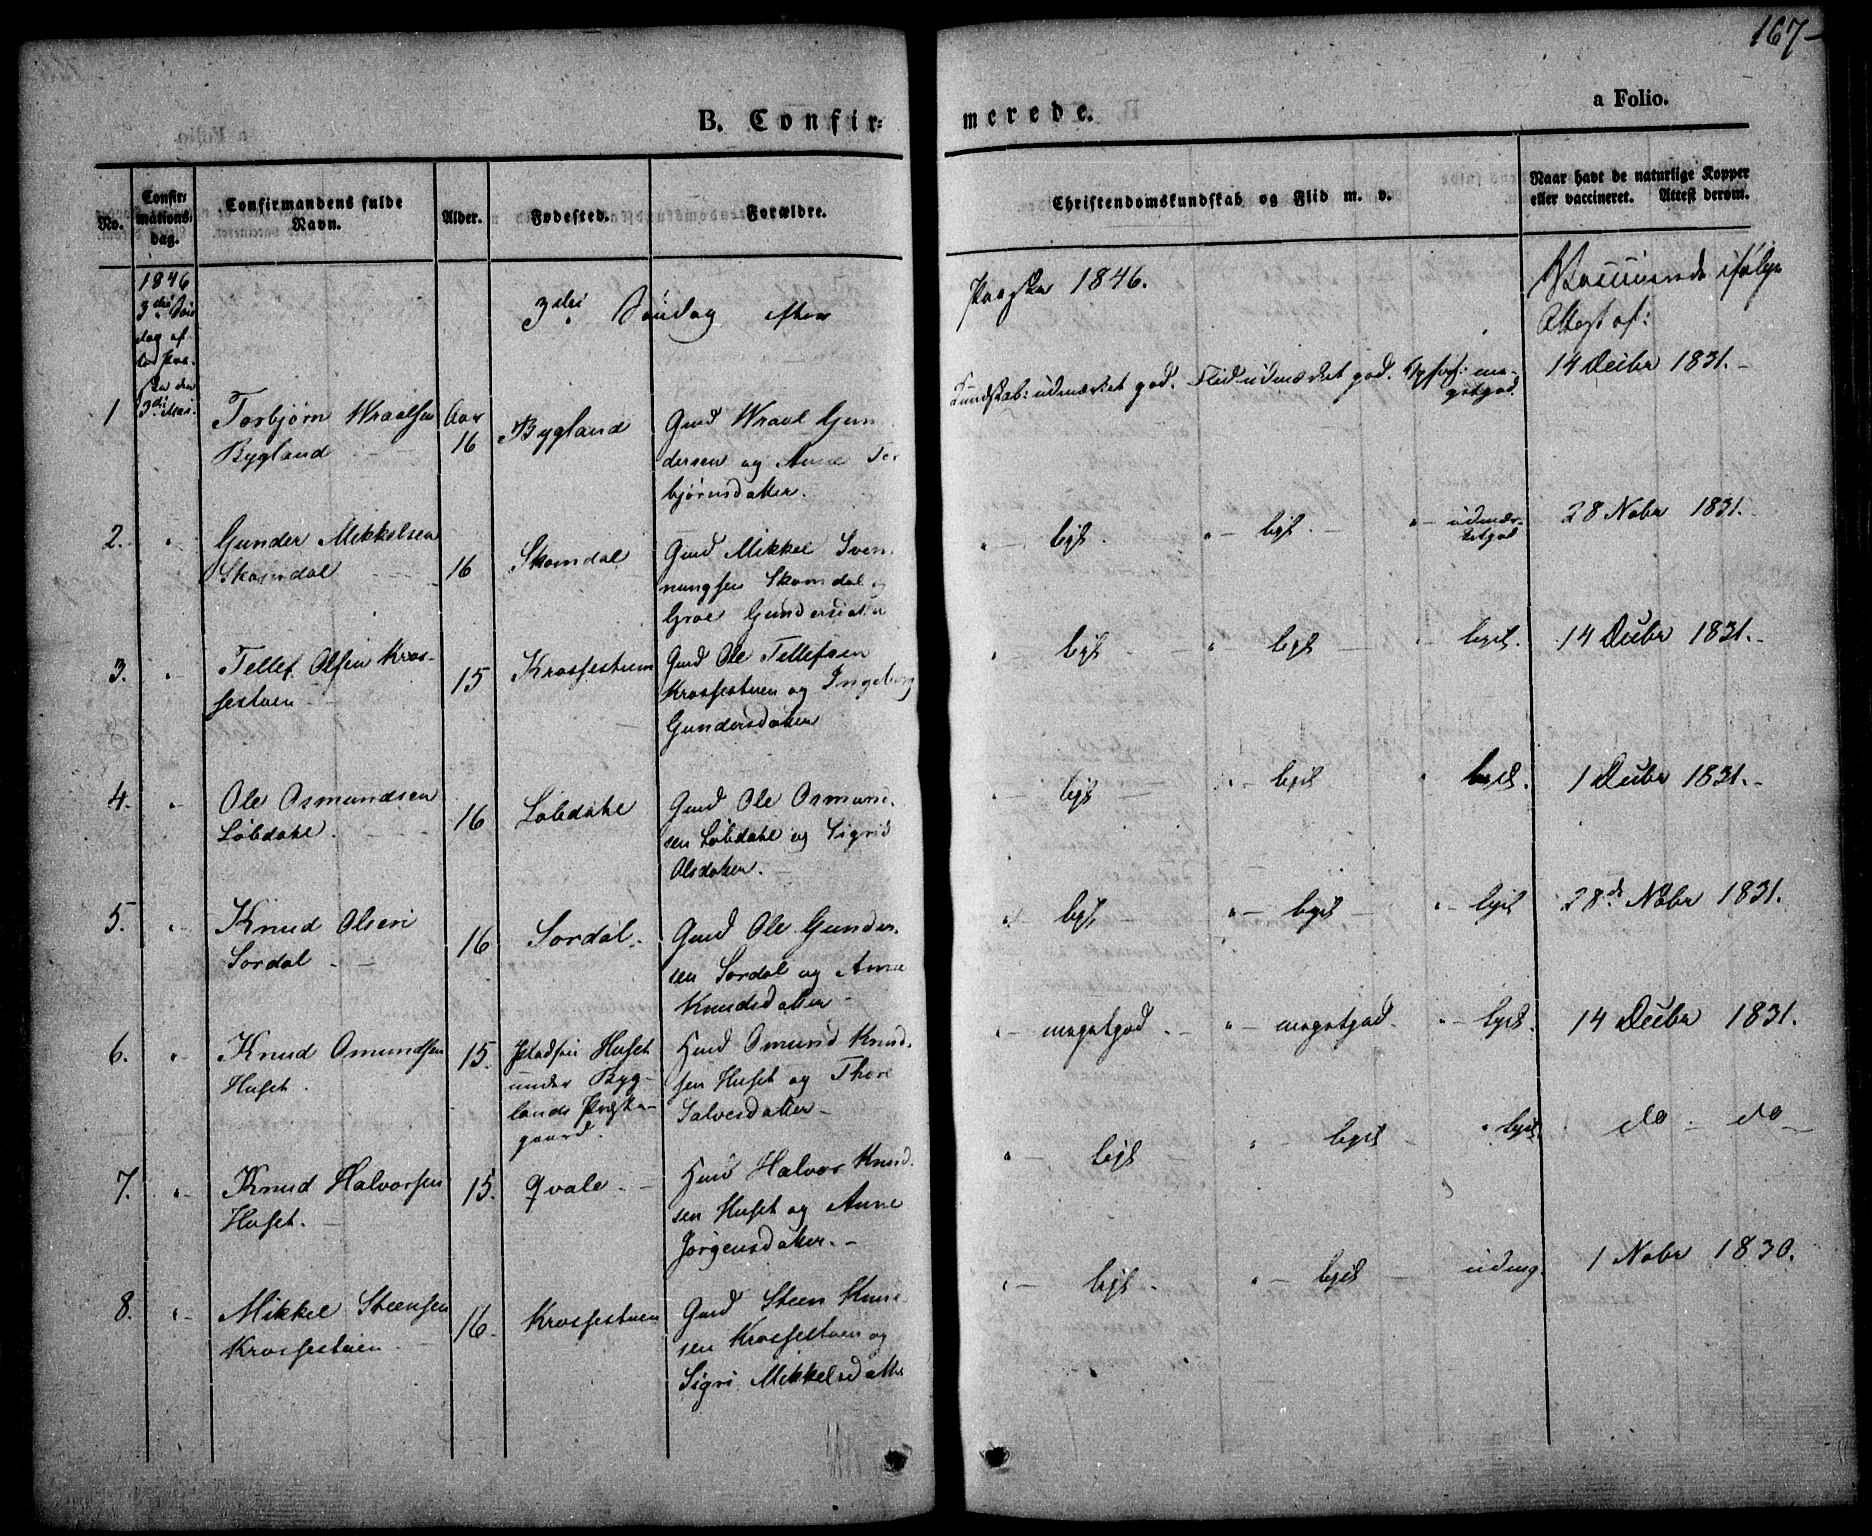 167
B. Confir=
merede.
a Folio.
No.
Confir=
mations=
dag.
Confirmandens fulde
Navn.
Alder.
Fødested.
Forældre.
Christendomskundskab og Flid m. v.
Naar havt de naturlige Kopper
eller vaccineret. Attest derom.
1846
3die Søn
dag ef
ter Paa
ske den
3die Mai.
3die Søndag efter
Paaske 1846.
Vaccinerede ifølge
Attest af:
1
Torbjørn Wraalsen
Bygland
Aar
16
Bygland
Gmd Wraal Gun
dersen og Anne Tor
bjørnsdatter.
Kundskab: udmærket god. Flid udmærket god. Opførs: me-
getgod.
14 Decbr 1831.
2. "
Gunder Mikkelsen
Skomdal
16
Skomdal
Gmd Mikkel Sven
nungsen Skomdal og
Groe Gundersdatter
" — ligs. " — ligs. — " — udmær-
ketgod
28 Novbr 1831.
3. "
Tellef Olsen Kros-
sestuen
15
Krossestuen
Gmd Ole Tellefsen
Krossestuen og Ingeborg
Gundersdatter
" — ligs — " — ligs — ligs.
14 Decbr 1831.
4. "
Ole Osmundsen
Løbdahl.
16
Løbdahl
Gmd Ole Osmund
sen Løbdahl og Sigrid
Olsdatter.
" — ligs " — ligs " ligs.
1 Decbr 1831.
5. "
Knud Olsen
Sordal
16
Sordal.
Gmd Ole Gunder
sen Sordal og Anne
Knudsdatter
" — ligs — " — ligs — " — ligs
28de Novbr 1831.
6. "
Knud Omundsen
Huset.
15.
Pladsen Huset
under Byg-
lands Præste-
gaard.
Hmd Omund Knud
sen Huset og Thore
Salvesdatter
" — megetgod. — " — megetgod. " — ligs.
14 Decbr 1831.
7. "
Knud Halvorsen
Huset.
15.
Qvale
Hmd Halvor Knud
sen Huset og Anne
Jørgensdatter.
" — ligs " — ligs — " ligs.
do — do
8. "
Mikkel Steensen
Krossestuen
16.
Krossestuen
Gmd Steen Knud
sen Krossestuen og
Sigri Mikkelsdatter
" — ligs. " — ligs — udmg.
1 Novbr 1830.